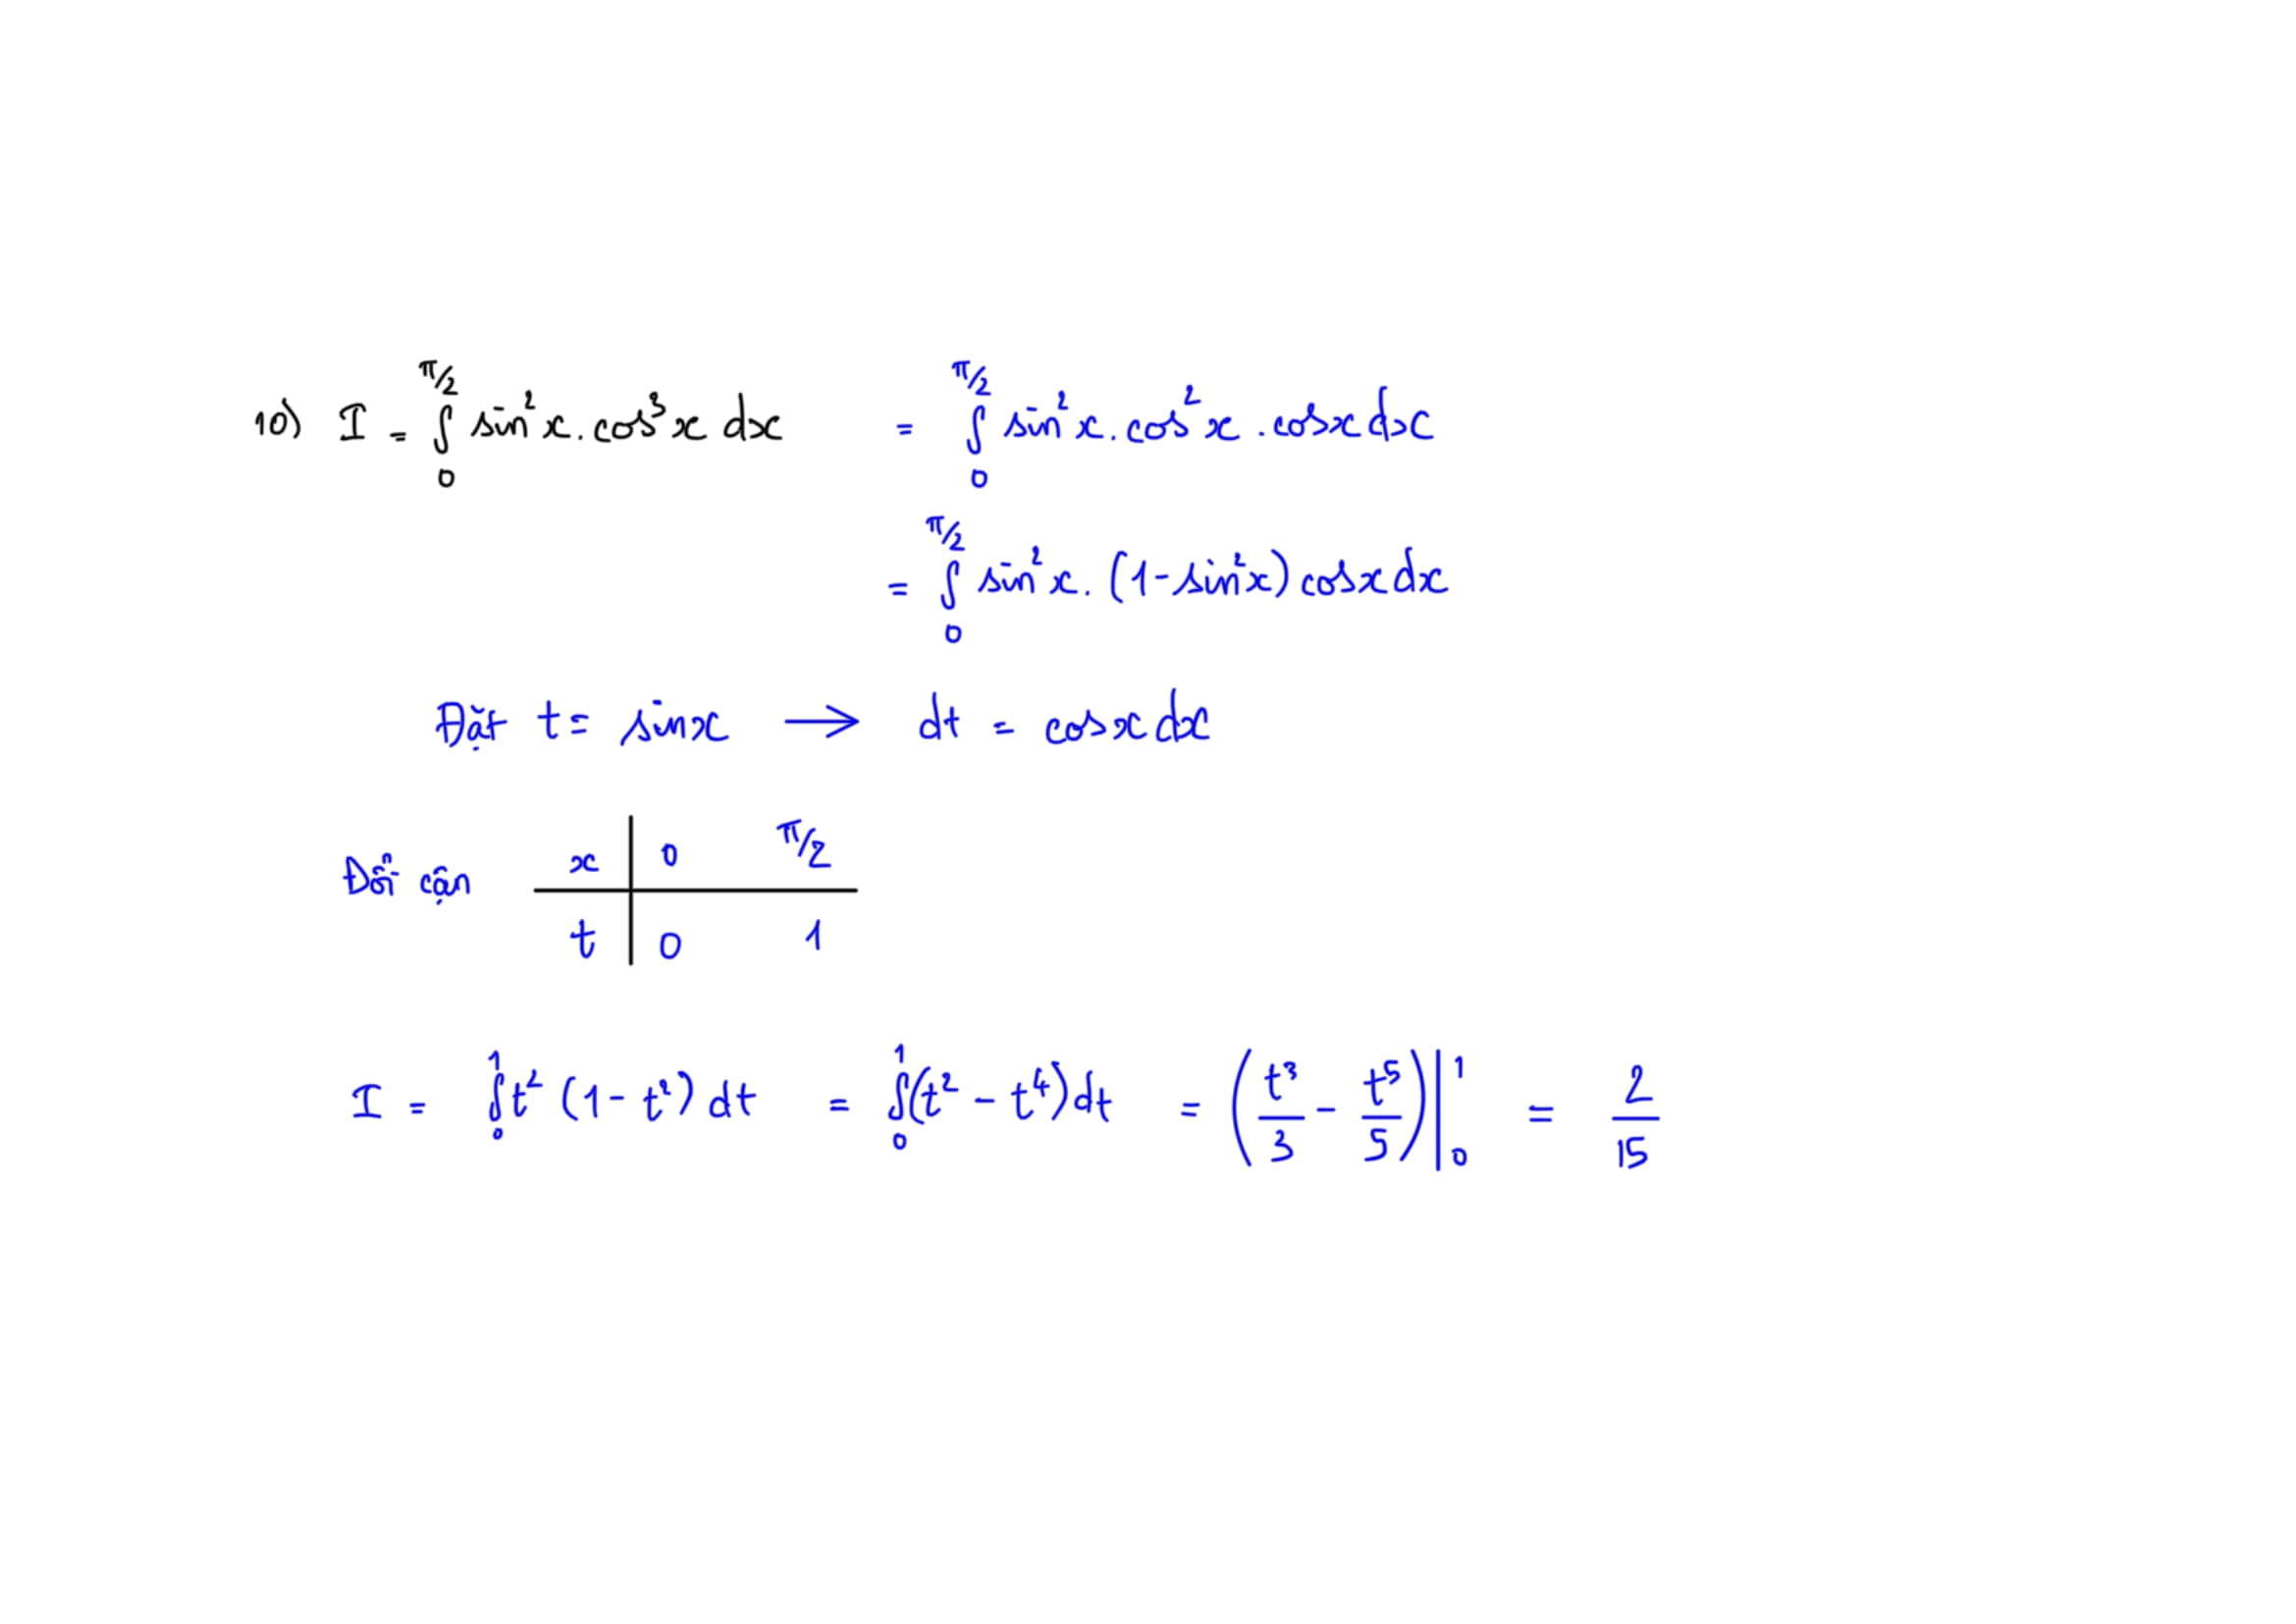 10) I = ∫₀^{π/2} sin²x . cos³x dx = ∫₀^{π/2} sin²x . cos²x . cosx dx
= ∫₀^{π/2} sin²x . (1 - sin²x) cosx dx
Đặt t = sinx → dt = cosx dx
Đổi cận x | 0 π/2
t | 0 1
I = ∫₀¹ t² (1 - t²) dt = ∫₀¹ (t² - t⁴) dt = (t³/3 - t⁵/5) |₀¹ = 2/15